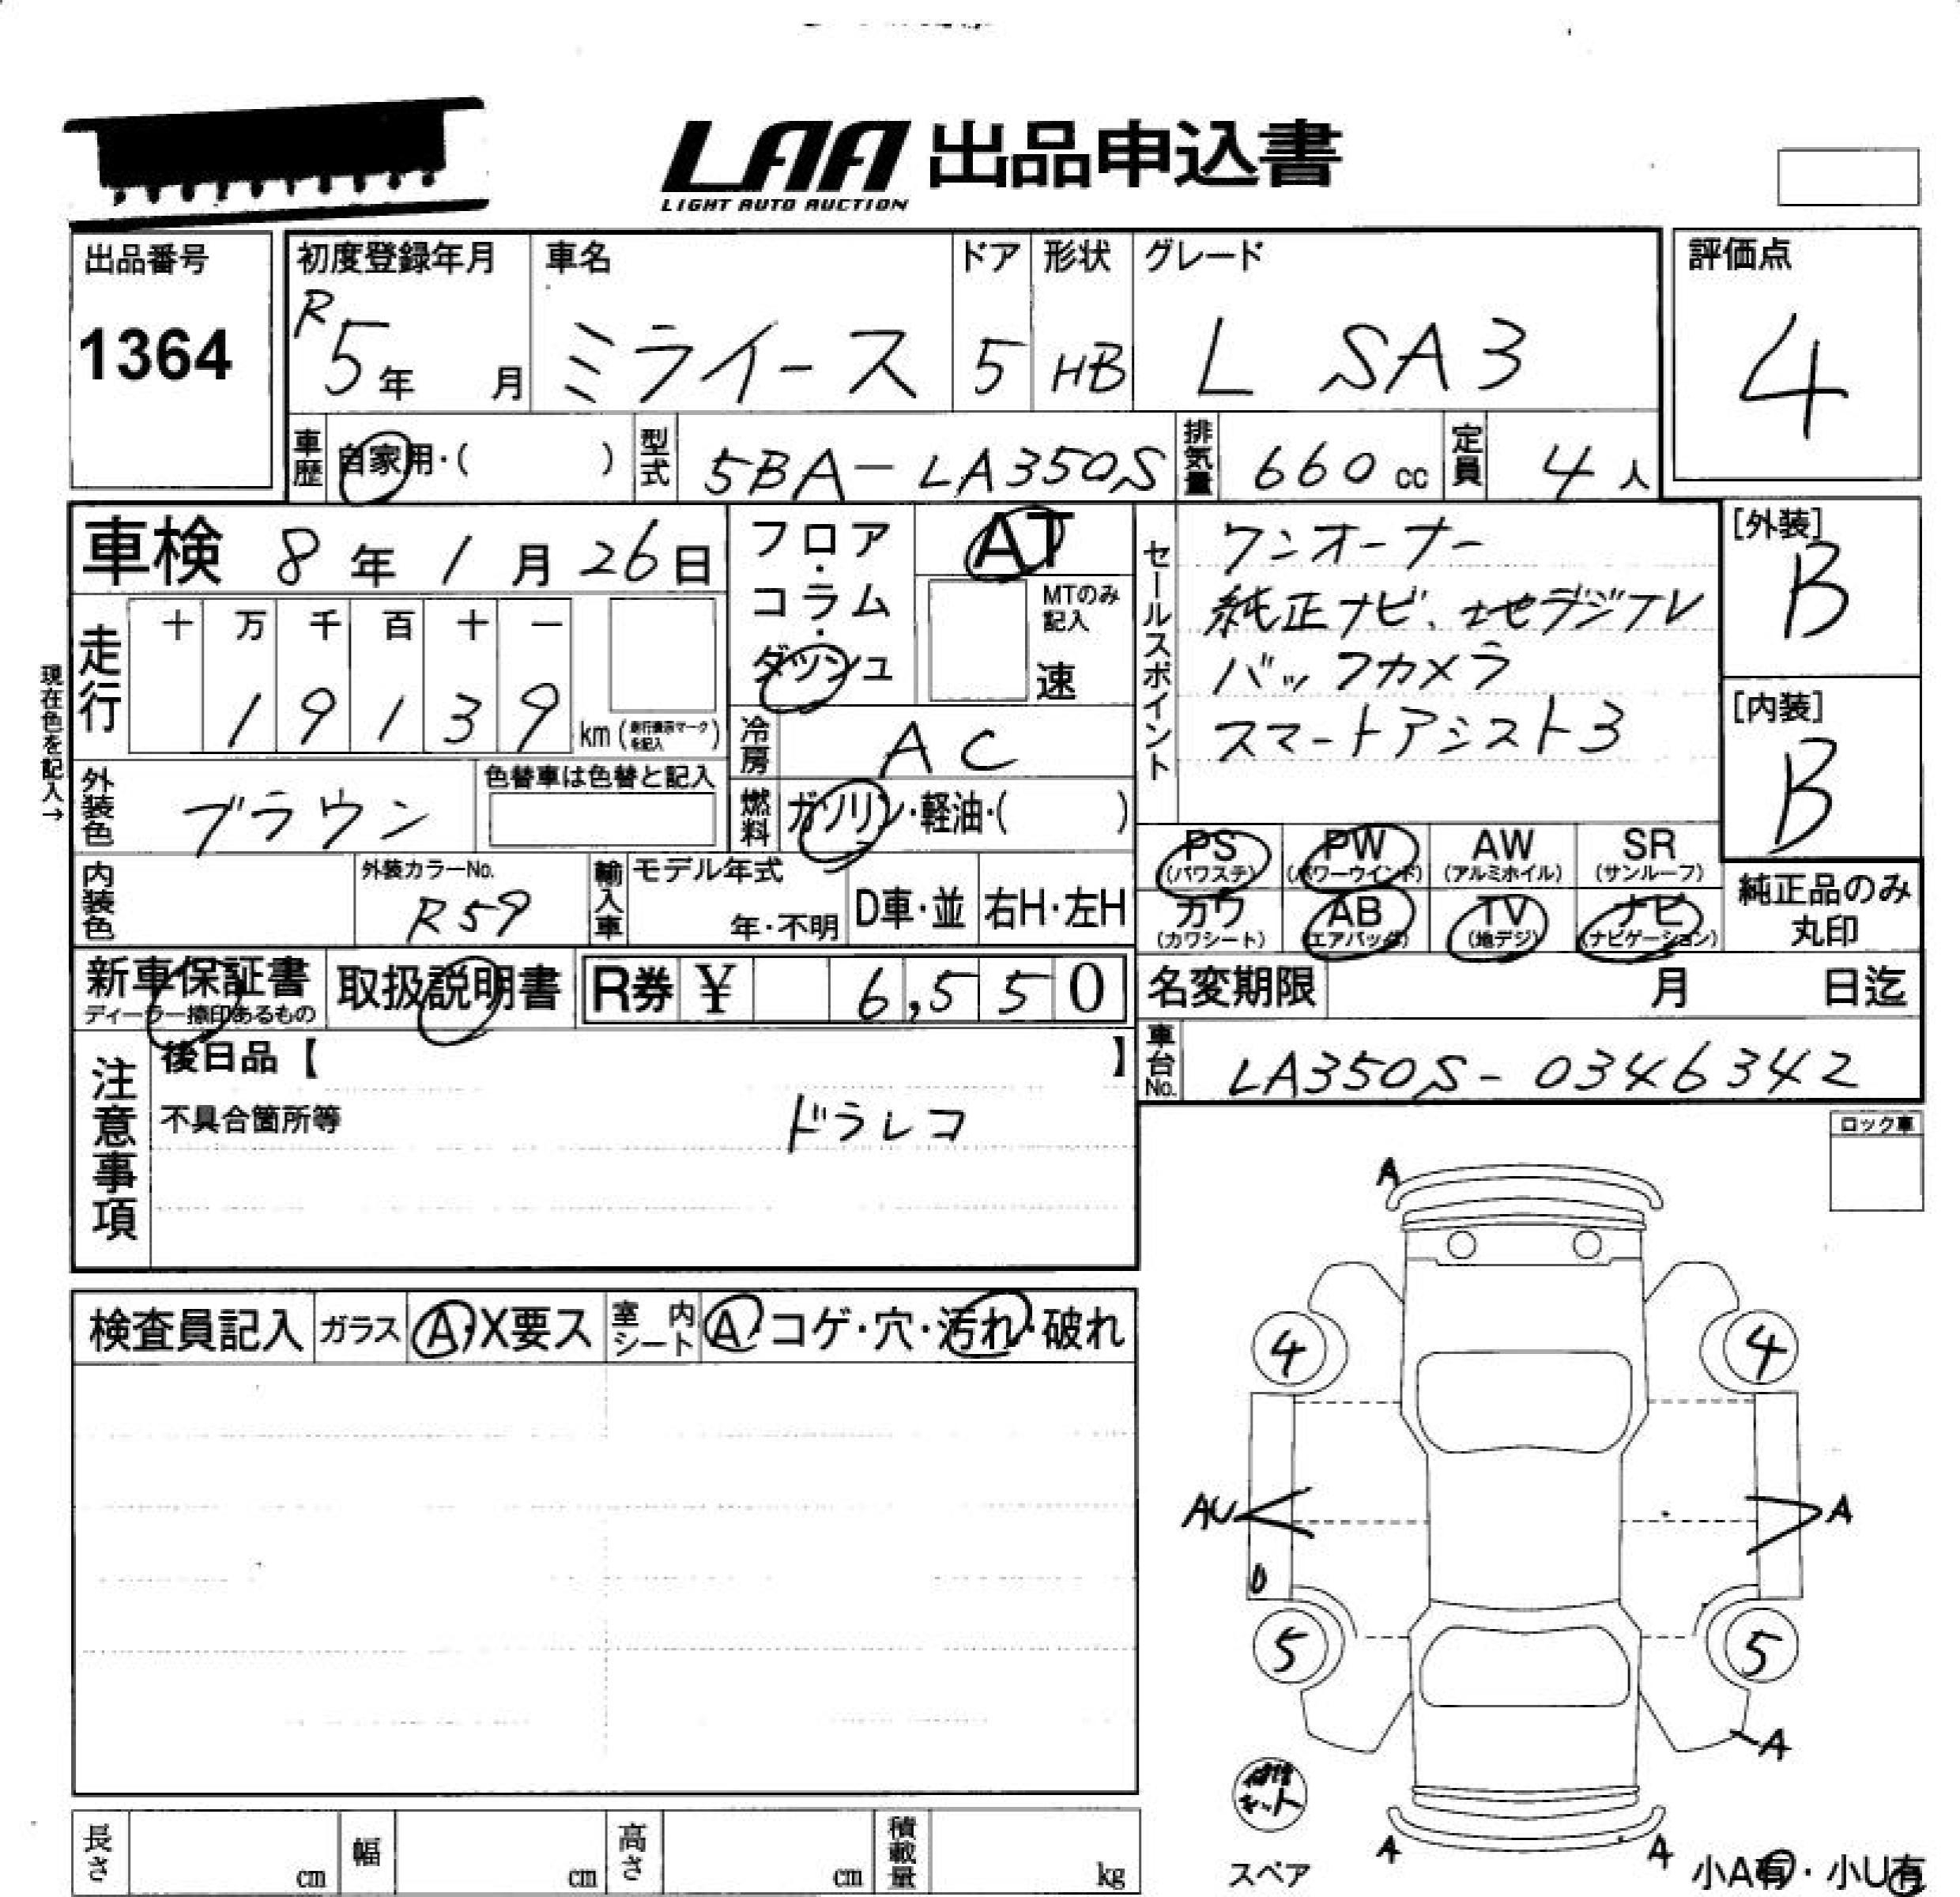 LAA 出品申込書
LIGHT AUTO AUCTION
出品番号
1364
初度登録年月
R5年 月
車名
ミライース
ドア
5
形状
HB
グレード
L SA3
評価点
4
車歴
自家用・( )
型式
5BA-LA350S
排気量
660 cc
定員
4人
車検 8年1月26日
フロア・コラム・ダッシュ
AT
MTのみ記入
速
セールスポイント
ワンオーナー
純正ナビ、地デジTV
バックカメラ
スマートアシスト3
[外装]
B
[内装]
B
現在色を記入→
走行
十 万 千 百 十 一
1 9 1 3 9 km (走行表示マークを記入)
冷房
AC
外装色
ブラウン
色替車は色替と記入
燃料
ガソリン・軽油・( )
PS (パワステ)
PW (パワーウインド)
AW (アルミホイル)
SR (サンルーフ)
カワ (カワシート)
AB (エアバッグ)
TV (地デジ)
ナビ (ナビゲーション)
純正品のみ
丸印
内装色
外装カラーNo.
R59
輸入車
モデル年式
年・不明
D車・並
右H・左H
新車保証書
ディーラー捺印あるもの
取扱説明書
R券 ¥ 6,550
名変期限 月 日迄
車台No.
LA350S-0346342
注意事項
後日品【 】
不具合箇所等
ドラレコ
ロック車
検査員記入
ガラス
A・X要ス
室内シート
A・コゲ・穴・汚れ・破れ
A
4 4
AU A
U
5 5
A
修理キット
スペア
A A
小A有・小U有
長さ cm
幅 cm
高さ cm
積載量 kg